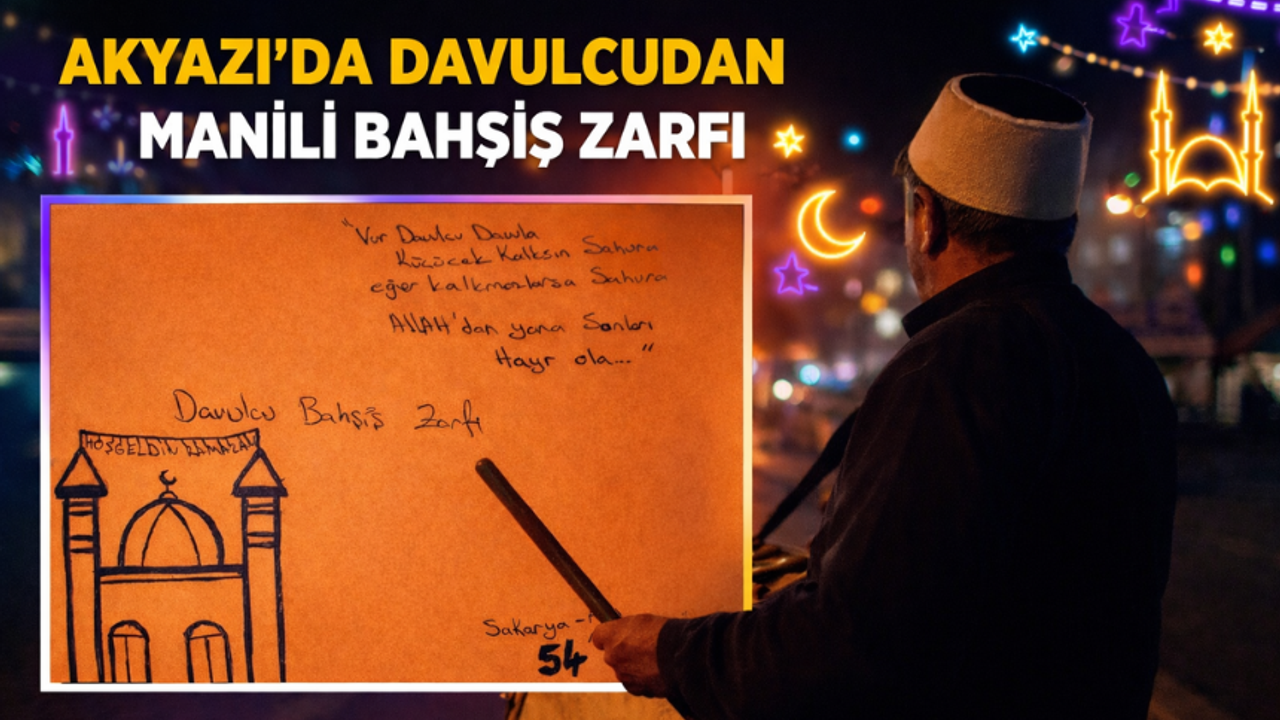 AKYAZI'DA DAVULCUDAN
MANİLİ BAHŞİŞ ZARFI
"Vur Davulcu Davula
Küçücek Kalksın Sahura
eğer kalkmazlarsa Sahura
ALLAH'dan yana Sonları
Hayr ola..."
Davulcu Bahşiş Zarfı
HOŞGELDİN RAMAZAN
Sakarya -
54